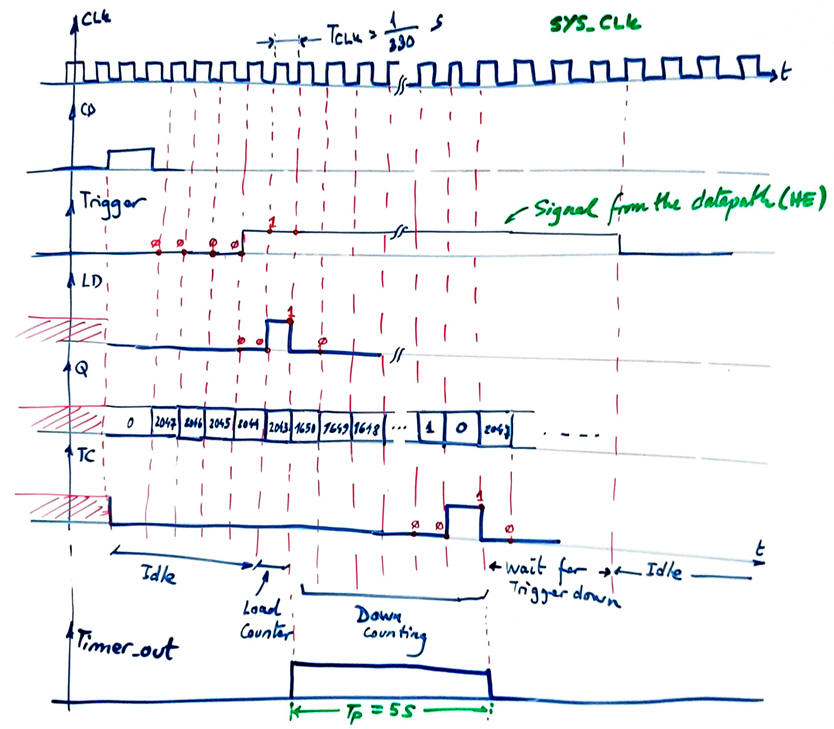 CLK
T_CLK = 1/330 s
SYS_CLK
t
CD
Trigger
Signal from the datapath (HE)
ø ø ø ø 1
LD
ø ø 1 ø
Q
0 2047 2046 2045 2044 2043 1650 1649 1648 ... 1 0 2047 . - - - .
TC
ø ø 1 ø
t
Idle
Load Counter
Down Counting
wait for Trigger down
Idle
Timer_out
Tp = 5s